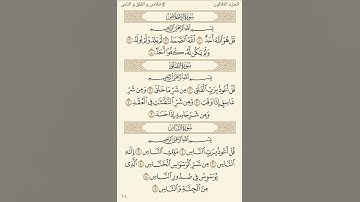 الجزء الثلاثون
الإخلاص و الفلق و الناس
سُورَةُ الإِخْلَاصِ
بِسْمِ اللَّهِ الرَّحْمَٰنِ الرَّحِيمِ
قُلْ هُوَ اللَّهُ أَحَدٌ ١ اللَّهُ الصَّمَدُ ٢ لَمْ يَلِدْ وَلَمْ يُولَدْ ٣
وَلَمْ يَكُن لَّهُ كُفُوًا أَحَدٌ ٤
سُورَةُ الفَلَقِ
بِسْمِ اللَّهِ الرَّحْمَٰنِ الرَّحِيمِ
قُلْ أَعُوذُ بِرَبِّ الْفَلَقِ ١ مِن شَرِّ مَا خَلَقَ ٢ وَمِن شَرِّ
غَاسِقٍ إِذَا وَقَبَ ٣ وَمِن شَرِّ النَّفَّاثَاتِ فِي الْعُقَدِ ٤
وَمِن شَرِّ حَاسِدٍ إِذَا حَسَدَ ٥
سُورَةُ النَّاسِ
بِسْمِ اللَّهِ الرَّحْمَٰنِ الرَّحِيمِ
قُلْ أَعُوذُ بِرَبِّ النَّاسِ ١ مَلِكِ النَّاسِ ٢ إِلَٰهِ
النَّاسِ ٣ مِن شَرِّ الْوَسْوَاسِ الْخَنَّاسِ ٤ الَّذِي
يُوَسْوِسُ فِي صُدُورِ النَّاسِ ٥
مِنَ الْجِنَّةِ وَالنَّاسِ ٦
٦٠٤